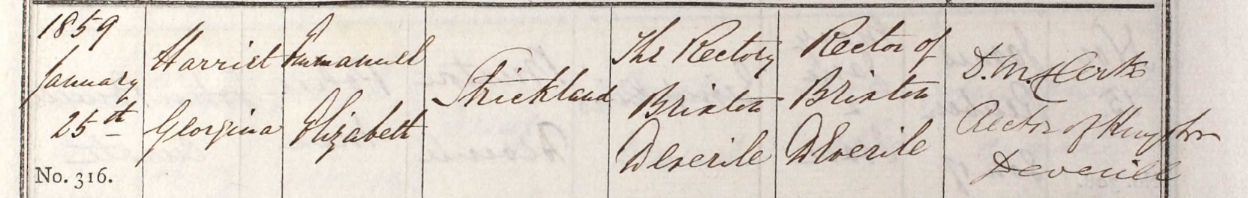 1859
January
25th
No. 316.
Harriet
Georgina
Emmanuel
Elizabeth
Strickland
The Rectory
Brixton
Deverile
Rector of
Brixton
Deverile
D. M. Clerke
Rector of Kingston
Deverill